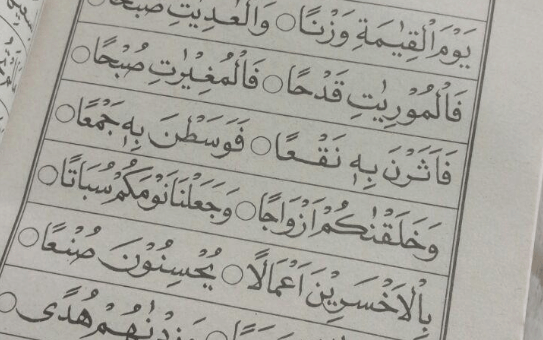 يَوْمَ الْقِيٰمَةِ وَزْنًا ○ وَالْعٰدِيٰتِ ضَبْحًا ○
فَالْمُوْرِيٰتِ قَدْحًا ○ فَالْمُغِيْرٰتِ صُبْحًا ○
فَاَثَرْنَ بِهٖ نَقْعًا ○ فَوَسَطْنَ بِهٖ جَمْعًا ○
وَخَلَقْنٰكُمْ اَزْوَاجًا ○ وَجَعَلْنَا نَوْمَكُمْ سُبَاتًا ○
بِالْاَخْسَرِيْنَ اَعْمَالًا ○ يُحْسِنُوْنَ صُنْعًا ○
وَزِدْنٰهُمْ هُدًى ○